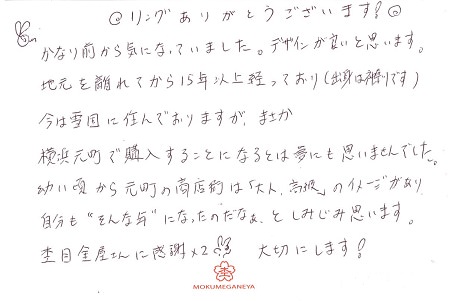 ◎リングありがとうございます!◎
かなり前から気になっていました。デザインが良いと思います。
地元を離れてから15年以上経っており(出身は神奈川です)
今は雪国に住んでおりますが、まさか
横浜元町で購入することになるとは夢にも思いませんでした。
幼い頃から元町の商店街は「大人、高級」のイメージがあり
自分も"そんな年"になったのだなぁ、としみじみ思います。
杢目金屋さんに感謝×2 大切にします!
MOKUMEGANEYA